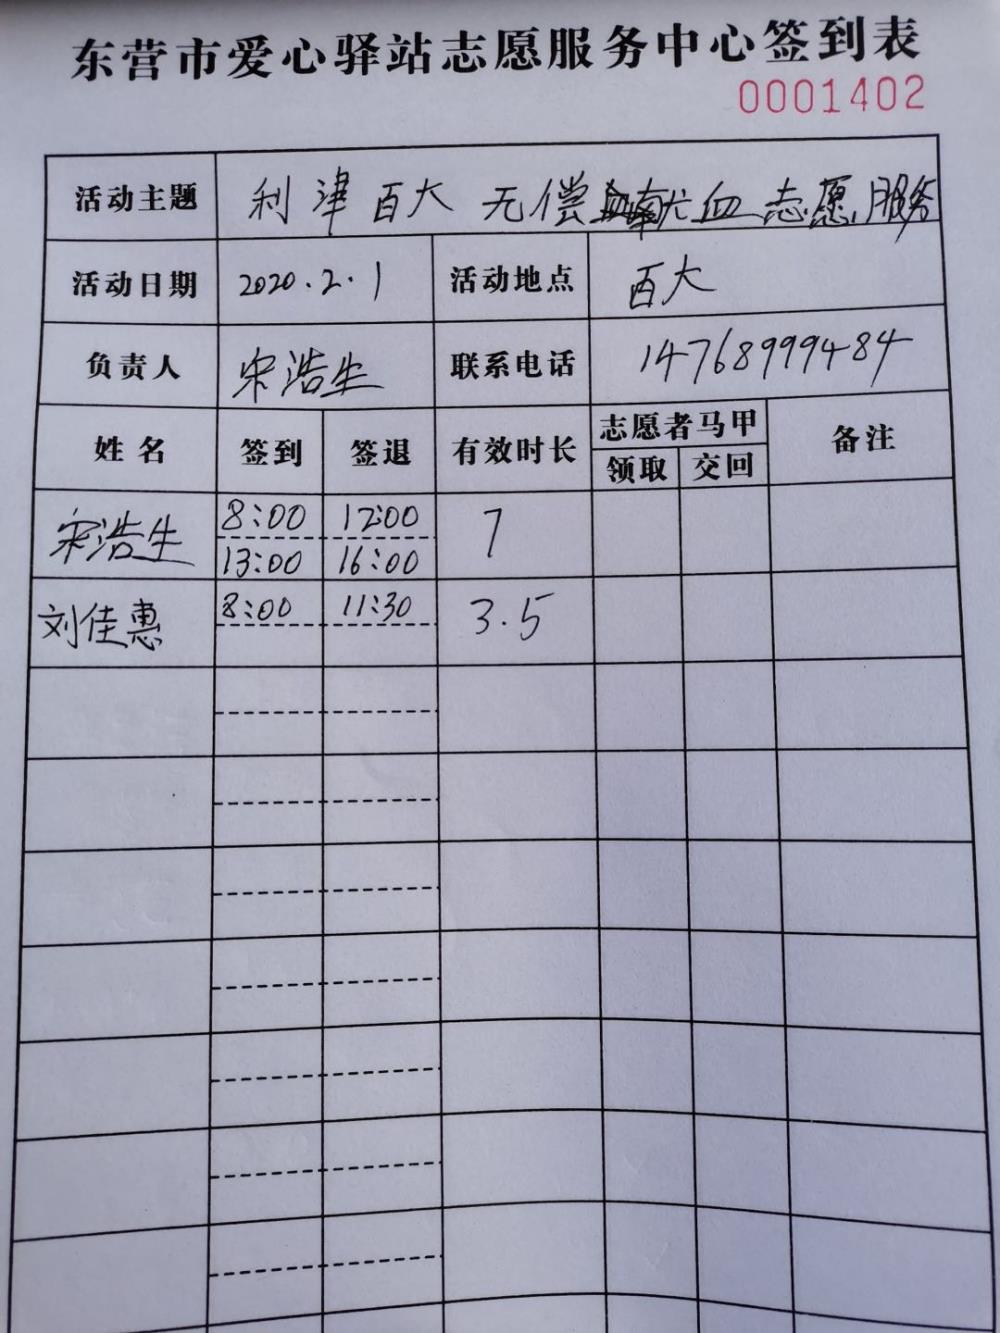 东营市爱心驿站志愿服务中心签到表
0001402
活动主题 利津百大 无偿献血志愿服务
活动日期 2020.2.1 活动地点 百大
负责人 宋浩生 联系电话 14768999484
姓名 签到 签退 有效时长 志愿者马甲 备注
领取 交回
宋浩生 8:00 12:00 7
13:00 16:00
刘佳惠 8:00 11:30 3.5